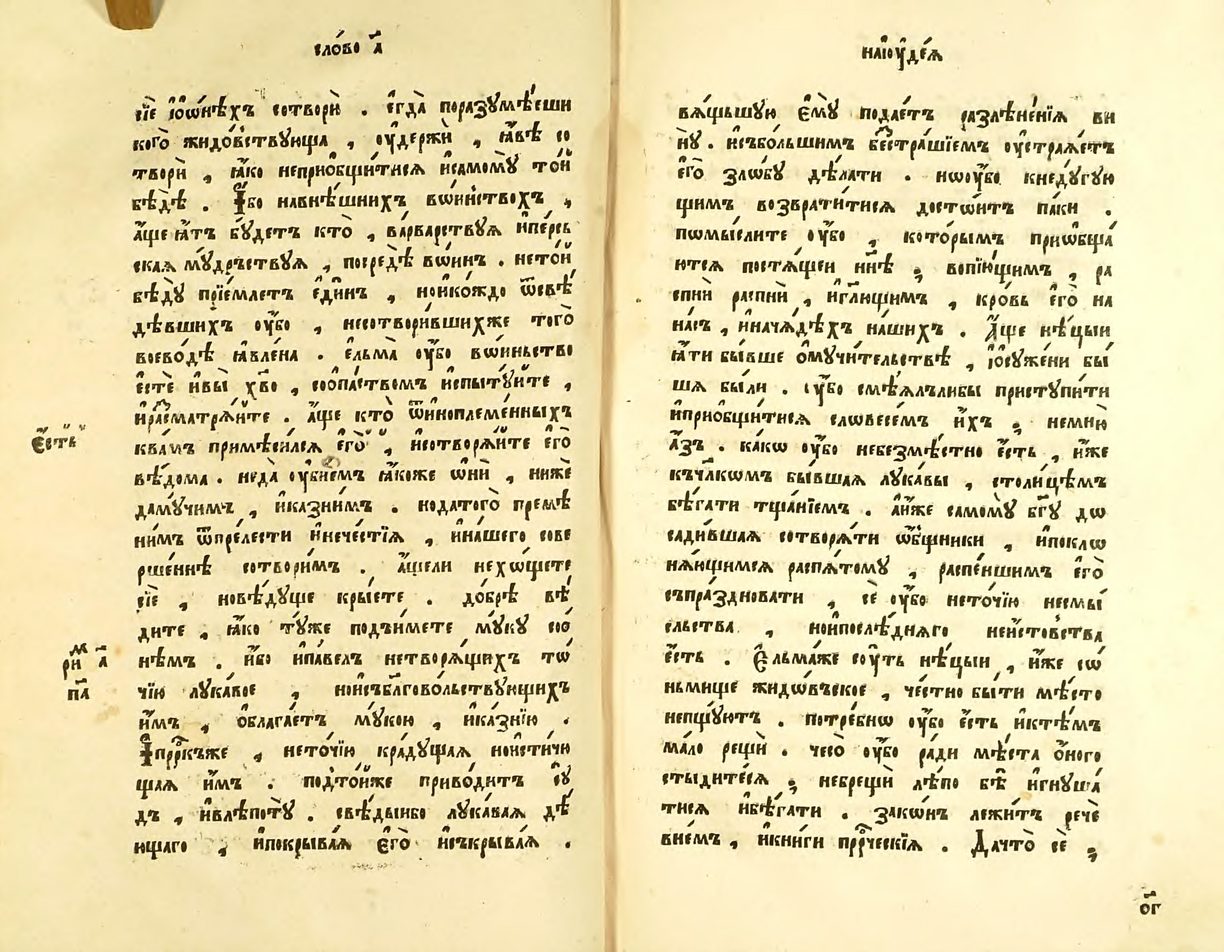 сло́во а҃
сїѐ і҆о́нѣхъ сотворѝ . є҆гда̀ поразꙋмѣ́еши
кого̀ жидо́вствꙋюща , ᲂу҆держѝ , ꙗ҆́вѣ со
творѝ , ꙗ҆́ко неприѻбщи́тисѧ исамомꙋ̀ то́й
бѣдѣ̀ . И҆́бо навнѣ́шнихъ во́инствохъ ,
а҆́ще ꙗ҆́тъ бꙋ́детъ кто̀ , ва́рварствꙋѧ ипе́рсь
скаѧ мꙋ́дръствꙋѧ , посредѣ̀ во́инъ . нето́й
бѣдꙋ̀ прїе́млетъ є҆ди́нъ , нои҆ко́ждо ѿсвѣ́
дѣвшихъ ᲂу҆́бо , несотвори́вшихже того̀
воево́дѣ ꙗ҆вле́на . є҆льма̀ ᲂу҆́бо во́инъство
є҆стѐ и҆вы̀ хв҃о , соѻпа́ствомъ и҆спытꙋ́ите ,
и҆расматрѧ́ите . а҆́ще кто̀ ѿиноплеме́нныхъ
ква́мъ примѣси́лсѧ є҆го̀ , и҆сотворѧ́ите є҆го̀
вѣ́дома . неда̀ ᲂу҆бие́мъ ꙗ҆́коже ѡ҆нѝ , нижѐ
дамꙋ́чимъ , и҆казни́мъ . нодатого̀ преме́
нимъ ѿпре́лести и҆нече́стїѧ , и҆на́шего сове
рше́ннѣ сотвори́мъ . а҆́щели нехо́щете
сїѐ , новѣ́дꙋще кры́ете . до́брѣ вѣ́
дите , ꙗ҆́ко тꙋ́же подъи́мете мꙋ́кꙋ соѻ
нѣ́мъ . и҆́бо и҆па́велъ нетворѧ́щихъ то́
чїю лꙋка́вое , нои҆съблаговольствꙋ́ющихъ
и҆̀мъ , ѻблага́етъ мꙋ́кою , и҆ка́знїю .
И҆прⷪ҇ркъже , нето́чїю крадꙋ́щаѧ нои҆стичю́
щаѧ и҆̀мъ . подто́йже приво́дитъ сꙋ́
дъ , и҆влѣ́потꙋ . свѣ́дыибо лꙋка́ваѧ дѣ́
ющаго , и҆покрыва́ѧ є҆го̀ и҆съкрыва́ѧ .
є҆́сть
м҃
ри а҃
па҃
наі҆ꙋдє́ѧ
вѧ́щьшꙋю є҆мꙋ̀ подае́тъ разлѣне́нїѧ ви
нꙋ̀ . исъбо́льшимъ бестра́шїемъ ᲂу҆стрѧ́етъ
є҆го̀ зло́бꙋ дѣ́лати . ноᲂу҆́бо кнедꙋ́гꙋю
щимъ возврати́тисѧ досто́итъ па́ки .
помы́слите ᲂу҆́бо , кото́рымъ приѻбща́
ютсѧ постѧ́щеи нн҃ѣ ; вопїю́щимъ , ра
спнѝ распнѝ , и҆гл҃ющимъ , кро́вь є҆го̀ на
на́съ , и҆на́чѧдѣхъ на́шихъ . А҆́ще нѣ́цыи
ꙗ҆́ти бы́вше ѻ҆мꙋчи́тельствѣ , і҆ѻсꙋже́ни бы́
шѧ бы́ли . ᲂу҆́бо смѣѧ́лълибы пристꙋпи́ти
и҆приѻбщи́тисѧ словесе́мъ и҆́хъ ; немню̀
а҆́зъ . ка́ко ᲂу҆́бо небезмѣ́стно є҆́сть , и҆́же
къчл҃ко́мъ бы́вшаѧ лꙋка́вы , столи́цѣмъ
бѣ́гати тща́нїемъ . а҆и҆́же самомꙋ̀ бг҃ꙋ до
сади́вшаѧ сотворѧ́ти ѻ҆́бщники , и҆покло
нѧ́ющимсѧ распѧ́томꙋ , распе́ншимъ є҆го̀
съпра́здновати , сѐ ᲂу҆́бо нето́чїю несмы́
сльства , нои҆послѣ́днѧго неи́стовства
є҆́сть . Є҆льма́же сꙋ́ть нѣ́цыи , и҆́же со́
ньмище жидо́въское , че́стно бы́ти мѣ́сто
непщꙋ́ютъ . потре́бно ᲂу҆́бо є҆́сть и҆ктѣ́мъ
ма́ло рещѝ . чесо̀ ᲂу҆́бо ра́ди мѣ́ста о҆́ного
стыди́тесѧ ; небрещѝ лѣ́по бѣ̀ и҆гнꙋша́
тисѧ и҆бѣ́гати . зако́нъ лежи́тъ речѐ
внѐмъ , и҆кни́ги прⷪ҇рческїѧ . Дачто̀ сѐ ;
ог҃